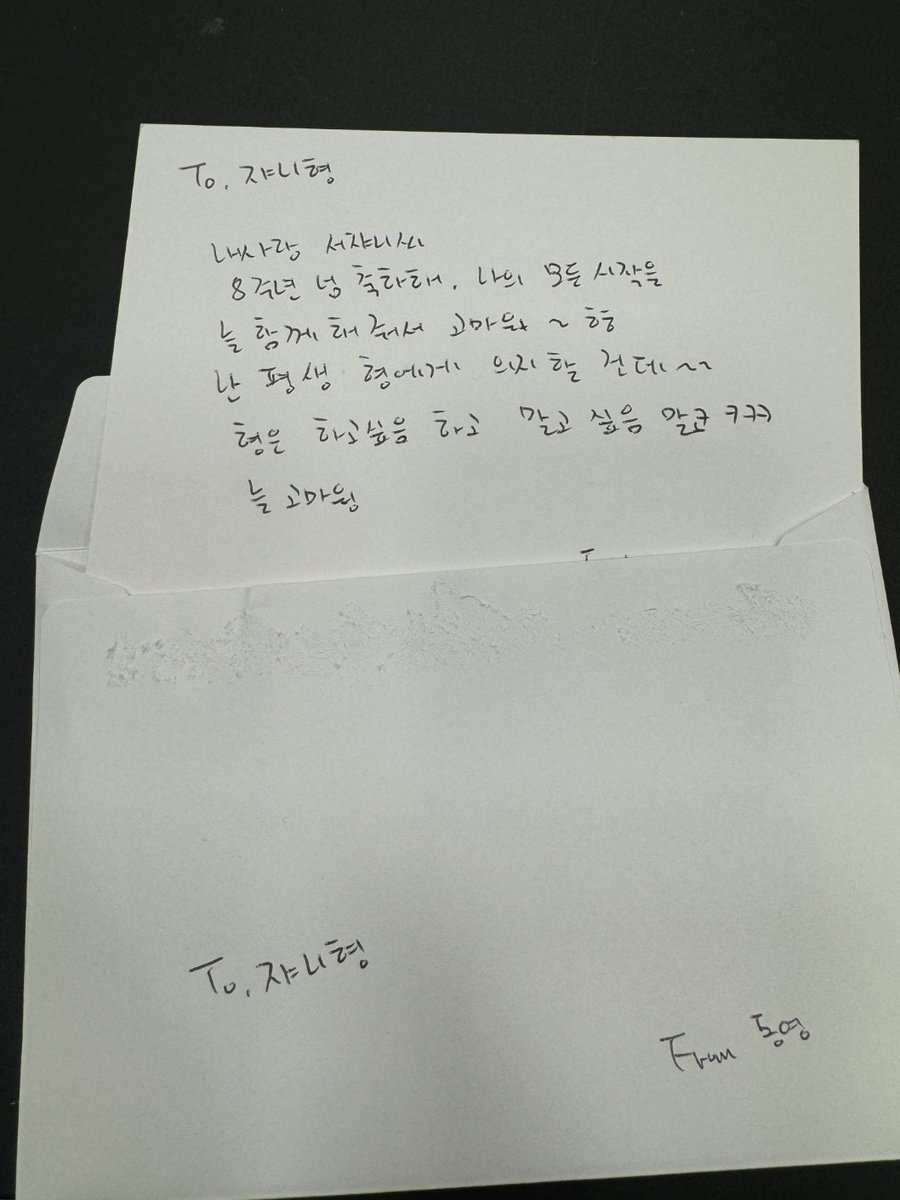 To. 쟈니형
내사랑 서쟈니씨
8주년 넘 축하해. 나의 모든 시작을
늘 함께 해줘서 고마워 ~ 형
난 평생 형에게 의지할 건데~~
형은 하고싶음 하고 말고 싶음 말고 ㅋㅋㅋ
늘 고마웡
To. 쟈니형
From 동영